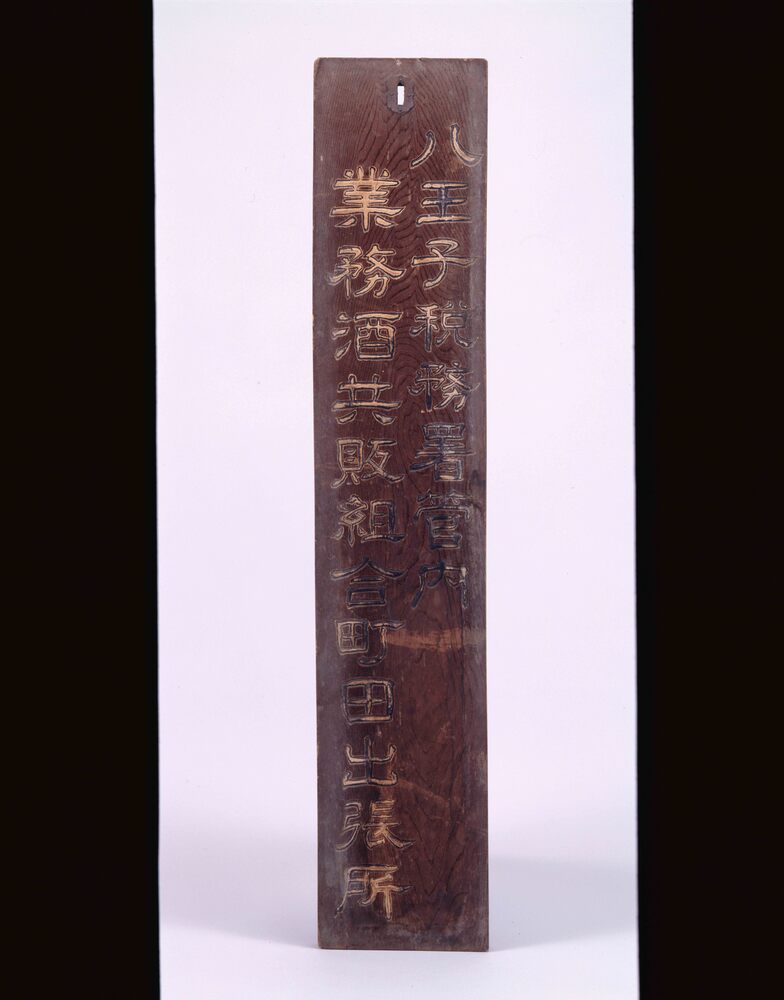 八王子税務署管内
業務酒共販組合町田出張所